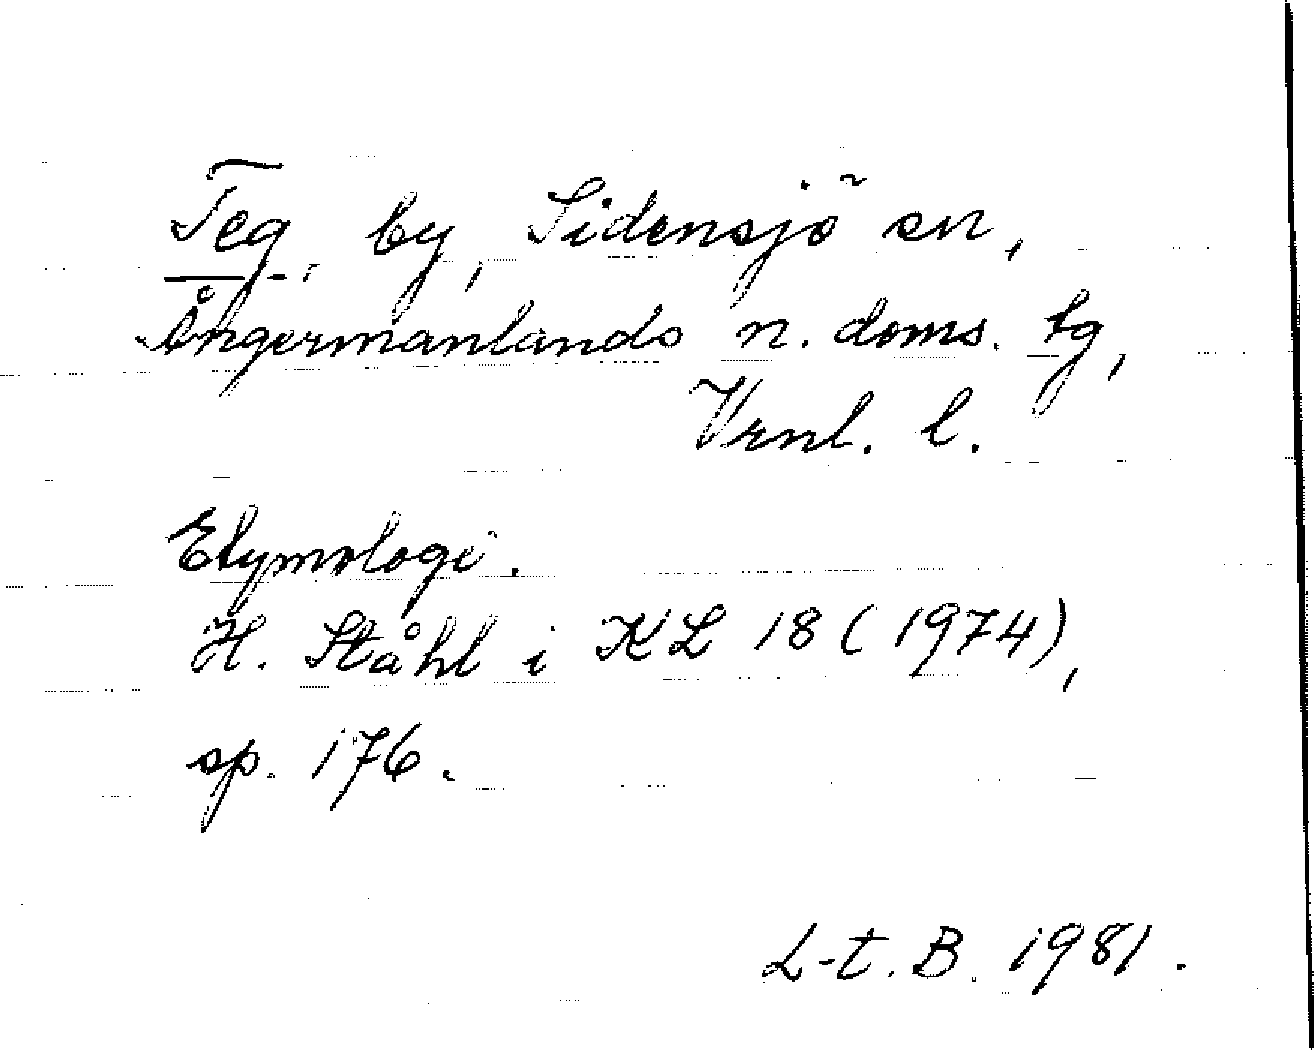 Teg, by, Sidensjö sn,
Ångermanlands n. doms. tg,
Vrnl. l.
Etymologi.
H. Ståhl i KL 18 (1974),
sp. 176.
L-t. B. 1981.